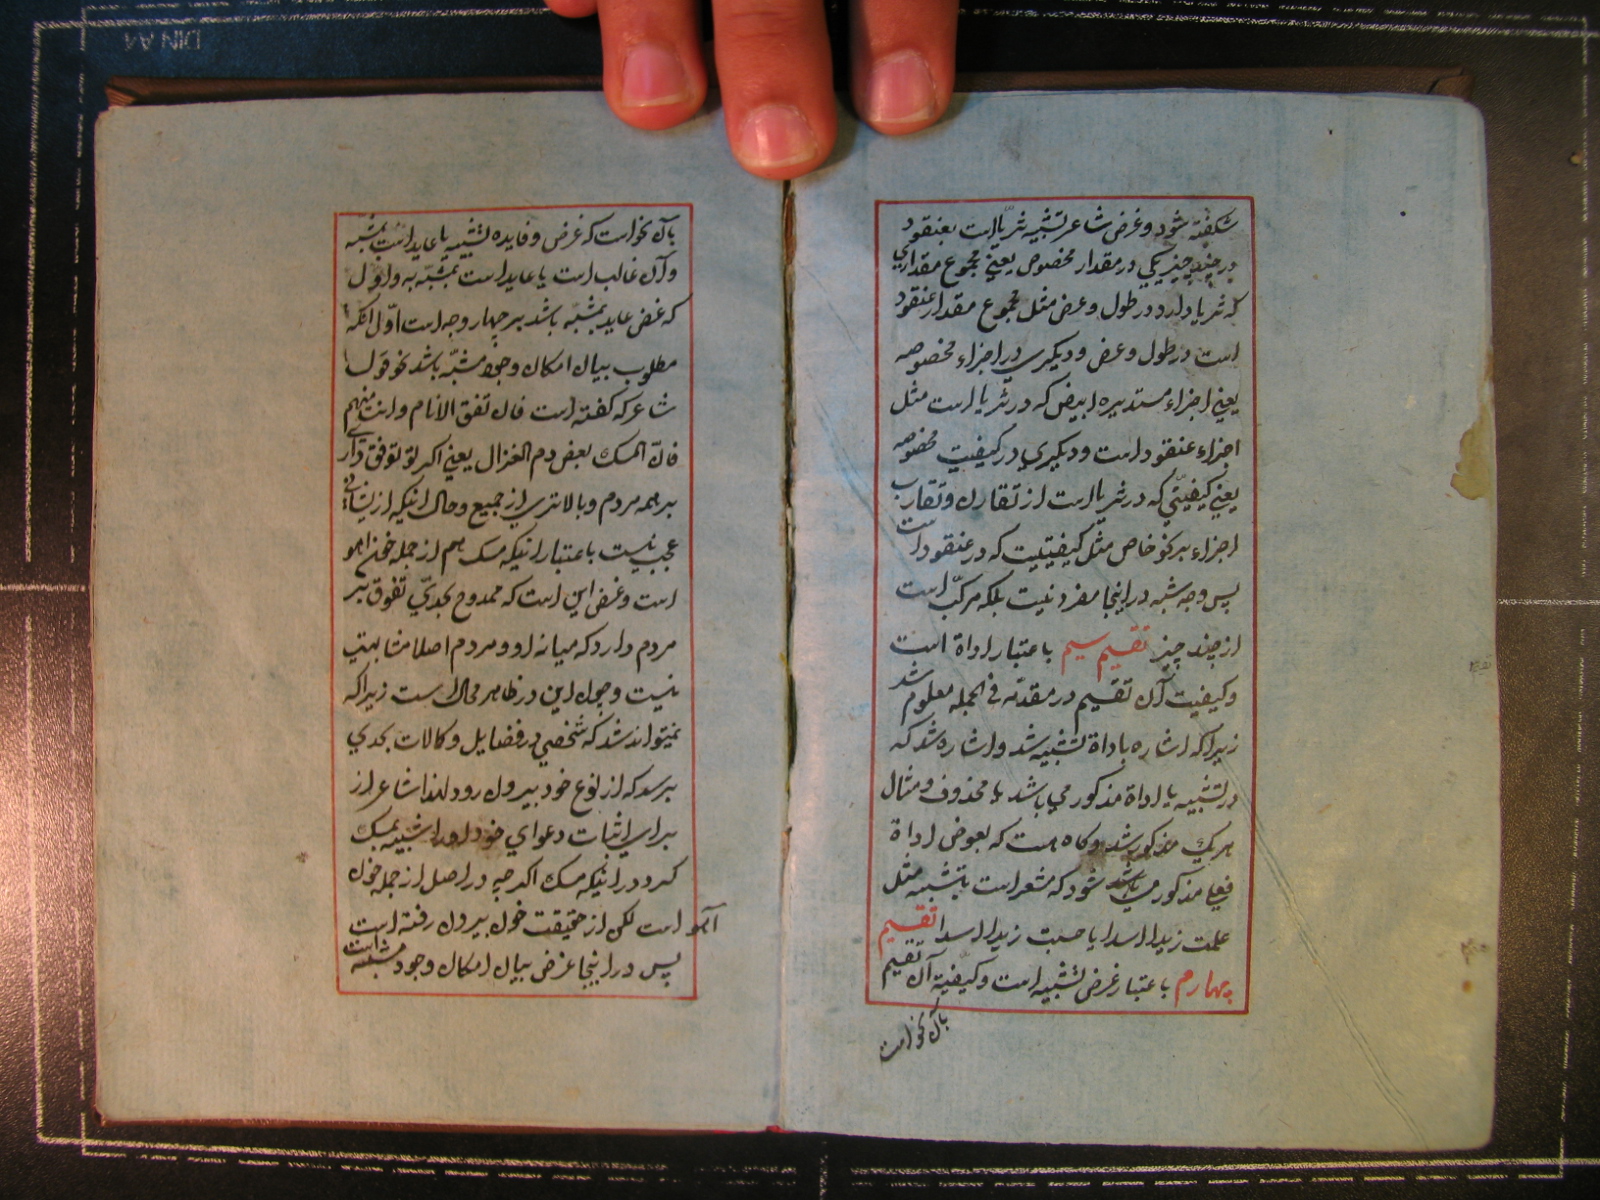 شکفته شود و غرض شاعر تشبیه ثریا است بعنقود
در چند چیز یکی در مقدار مخصوص یعنی مجموع مقداری
که ثریا دارد در طول و عرض مثل مجموع مقدار عنقود
است در طول و عرض و دیگری در اجزاء مخصوصه
یعنی اجزاء مستدیره ابیض که در ثریا است مثل
اجزاء عنقود است و دیگری در کیفیت مخصوصه
یعنی کیفیتی که در ثریا است از تقارن و تقارب
اجزاء بر نحو خاص مثل کیفیتیت که در عنقود است
پس وجه شبه در اینجا مفرد نیست بلکه مرکب است
از چند چیز تقسیم سیم باعتبار اداة است
و کیفیت آن تقسیم در مقدمه فی الجمله معلوم شد
زیرا که اشاره باداة تشبیه شد و اشاره شد که
در تشبیه یا اداة مذکور می باشد یا محذوف و مثال
هر یک مذکور شد و کاه هست که بعوض اداة
فعلی مذکور می شود که مشعر است بتشبیه مثل
علمت زیدا اسدا یا حسبت زیدا اسدا تقسیم
چهارم باعتبار غرض تشبیه است و کیفیة آن تقسیم
بآن نحو است
بآن نحو است که غرض و فایده تشبیه یا عاید است بمشبه
و آن غالب است یا عاید است بمشبه به و اول
که غرض عاید بمشبه باشد بر چهار وجه است اول آنکه
مطلوب بیان امکان وجود مشبه باشد نحو قول
شاعر که کفته است فان تفق الانام و انت منهم
فان المسک بعض دم الغزال یعنی اکر تو تفوق داری
بر همه مردم و بالاتری از جمیع و حال اینکه از ایشانی
عجب نیست باعتبار اینکه مسک هم از جمله خون آهو
است و غرض این است که ممدوح بحدی تفوق بر
مردم دارد که میانه او و مردم اصلا مشابهتی
نیست و چون این در ظاهر محال است زیرا که
نمیتواند شد که شخصی در فضایل و کمالات بحدی
برسد که از نوع خود بیرون رود لهذا شاعر از
برای اثبات دعوای خود او را تشبیه بمسک
کرد در اینکه مسک اکر چه در اصل از جمله خون
آهو است لکن از حقیقت خون بیرون رفته است
پس در اینجا غرض بیان امکان وجود مشبه است